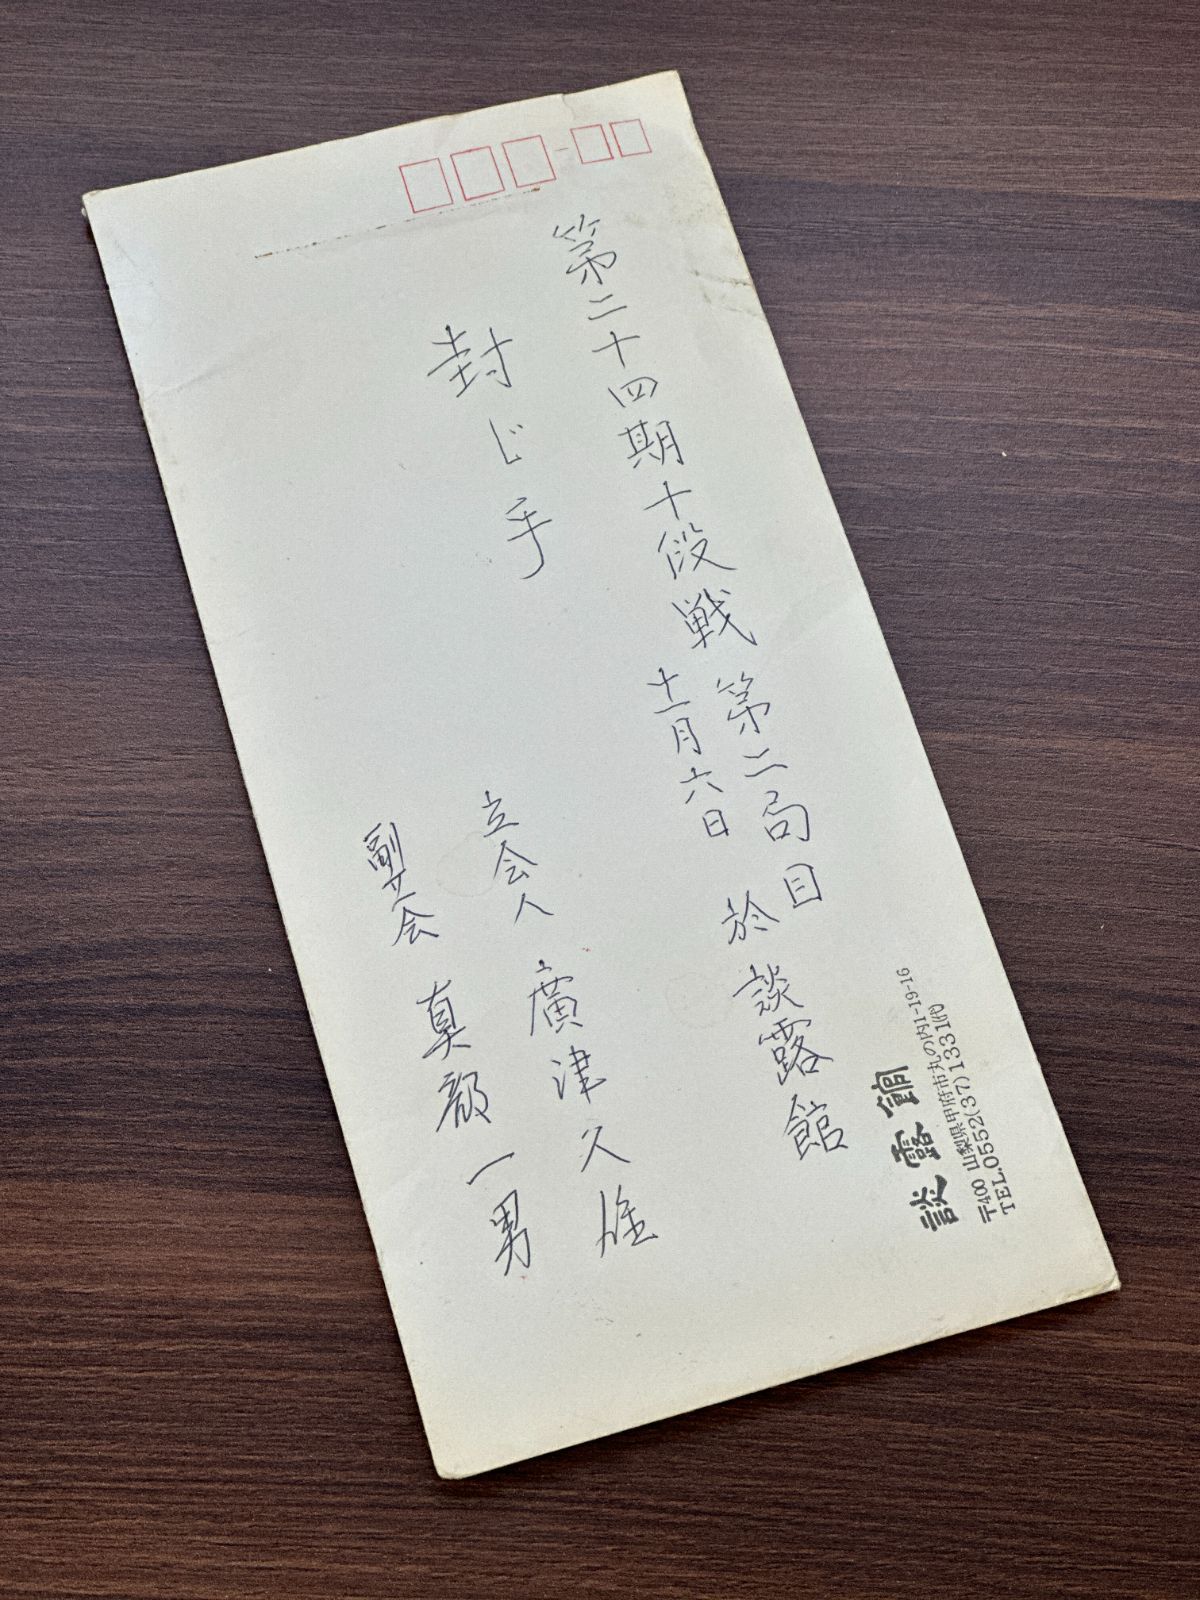 第二十四期十段戦 第二局目
十一月六日 於 談露館
封じ手
立会人 廣津久雄
副立会 真部一男
談露館
〒400 山梨県甲府市丸の内1-19-16
TEL.0552(37)1331㈹